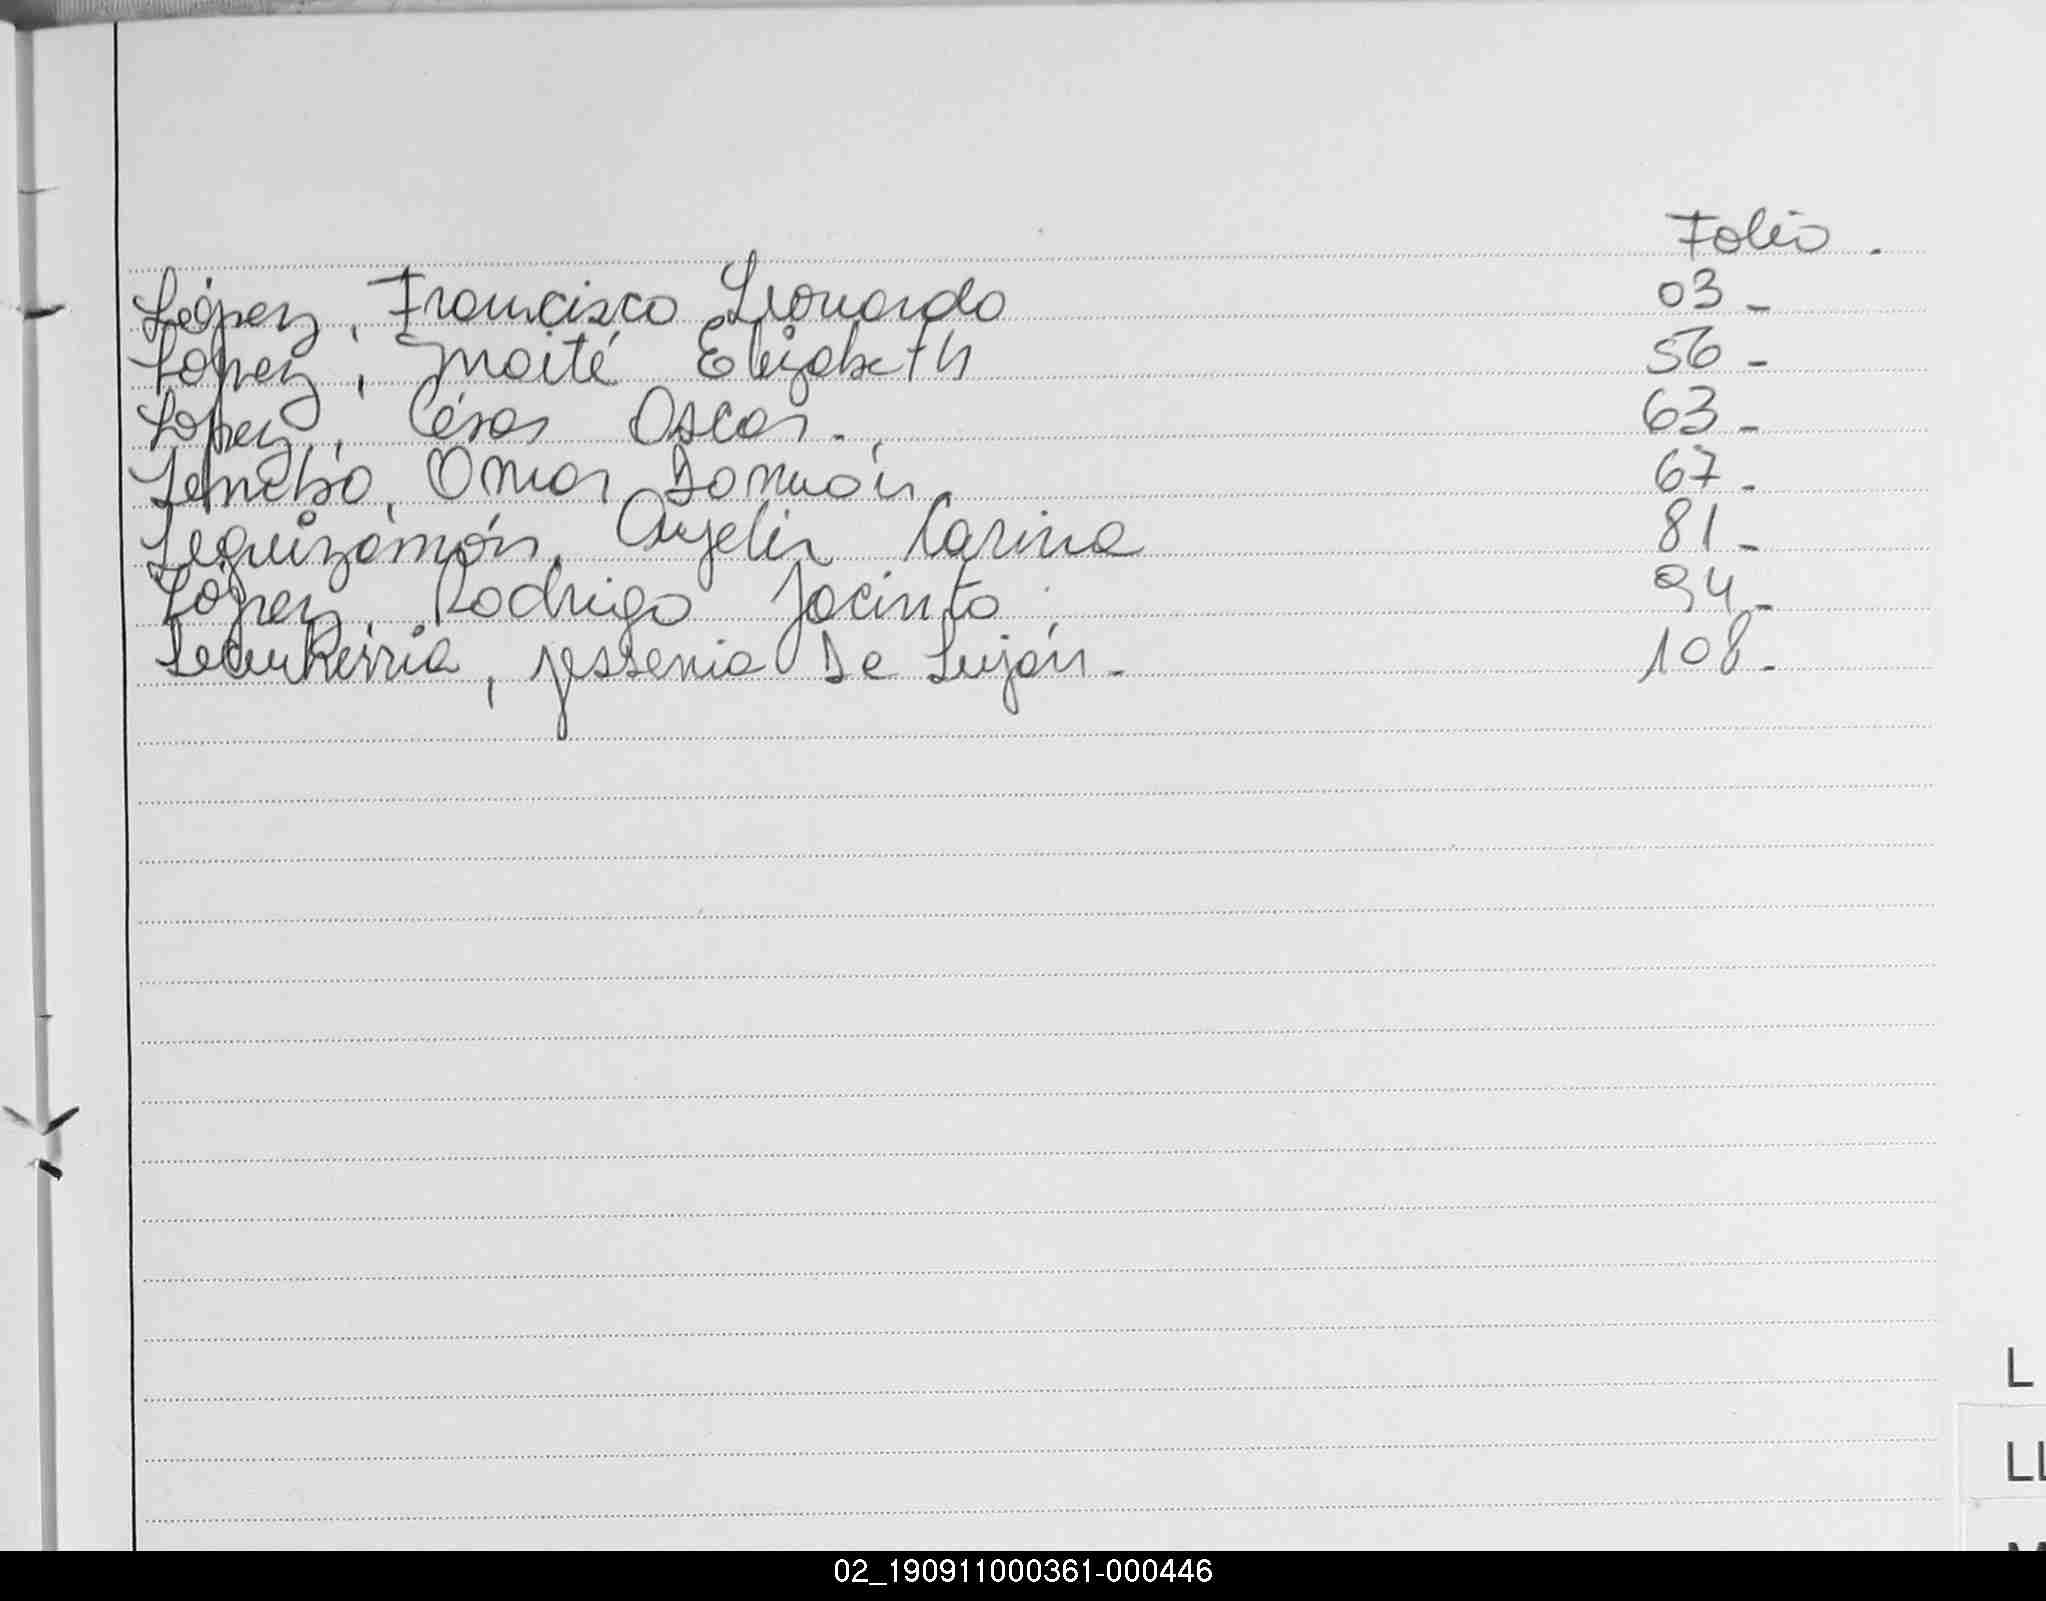 Folio.
López, Francisco Leonardo 03-
López, Maité Elizabeth 56-
López, César Oscar. 63-
Omar Damián. 67-
Leguizamón, Ayelén Carina 81-
López, Rodrigo Jacinto 94-
Jessenia De Luján- 108-
L
LL
02_190911000361-000446